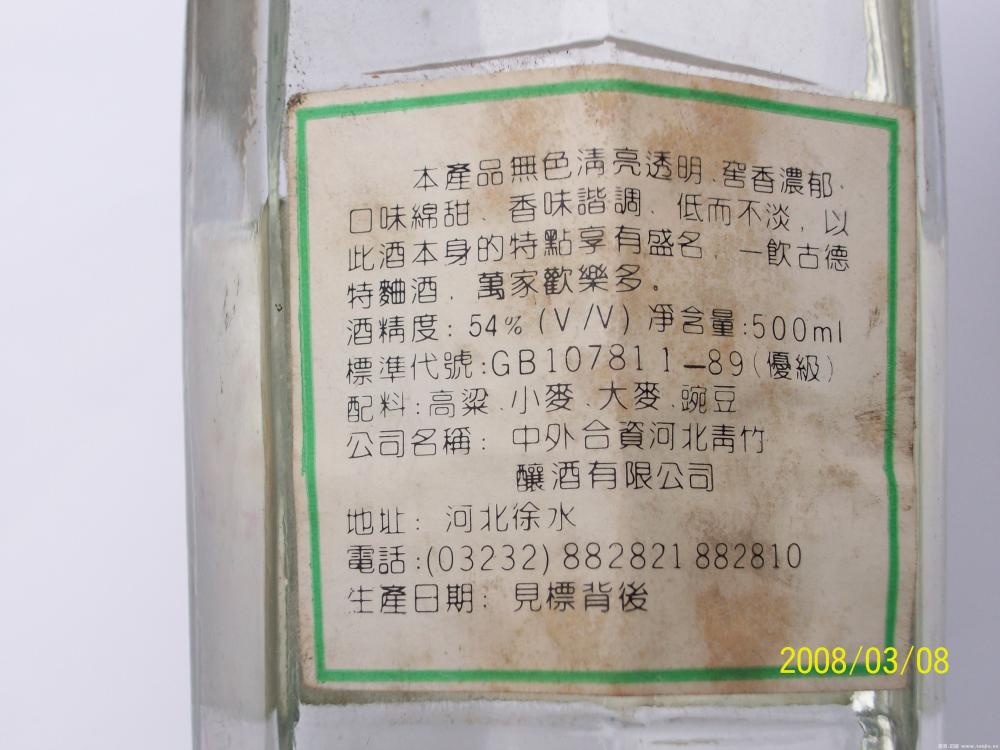 本產品無色清亮透明、窖香濃郁、
口味綿甜、香味諧調、低而不淡，以
此酒本身的特點享有盛名，一飲古德
特麯酒，萬家歡樂多。
酒精度：54%(V/V) 凈含量:500ml
標準代號:GB10781 1—89(優級)
配料:高粱、小麥、大麥、豌豆
公司名稱：中外合資河北青竹
釀酒有限公司
地址：河北徐水
電話:(03232) 882821 882810
生產日期：見標背後
2008/03/08